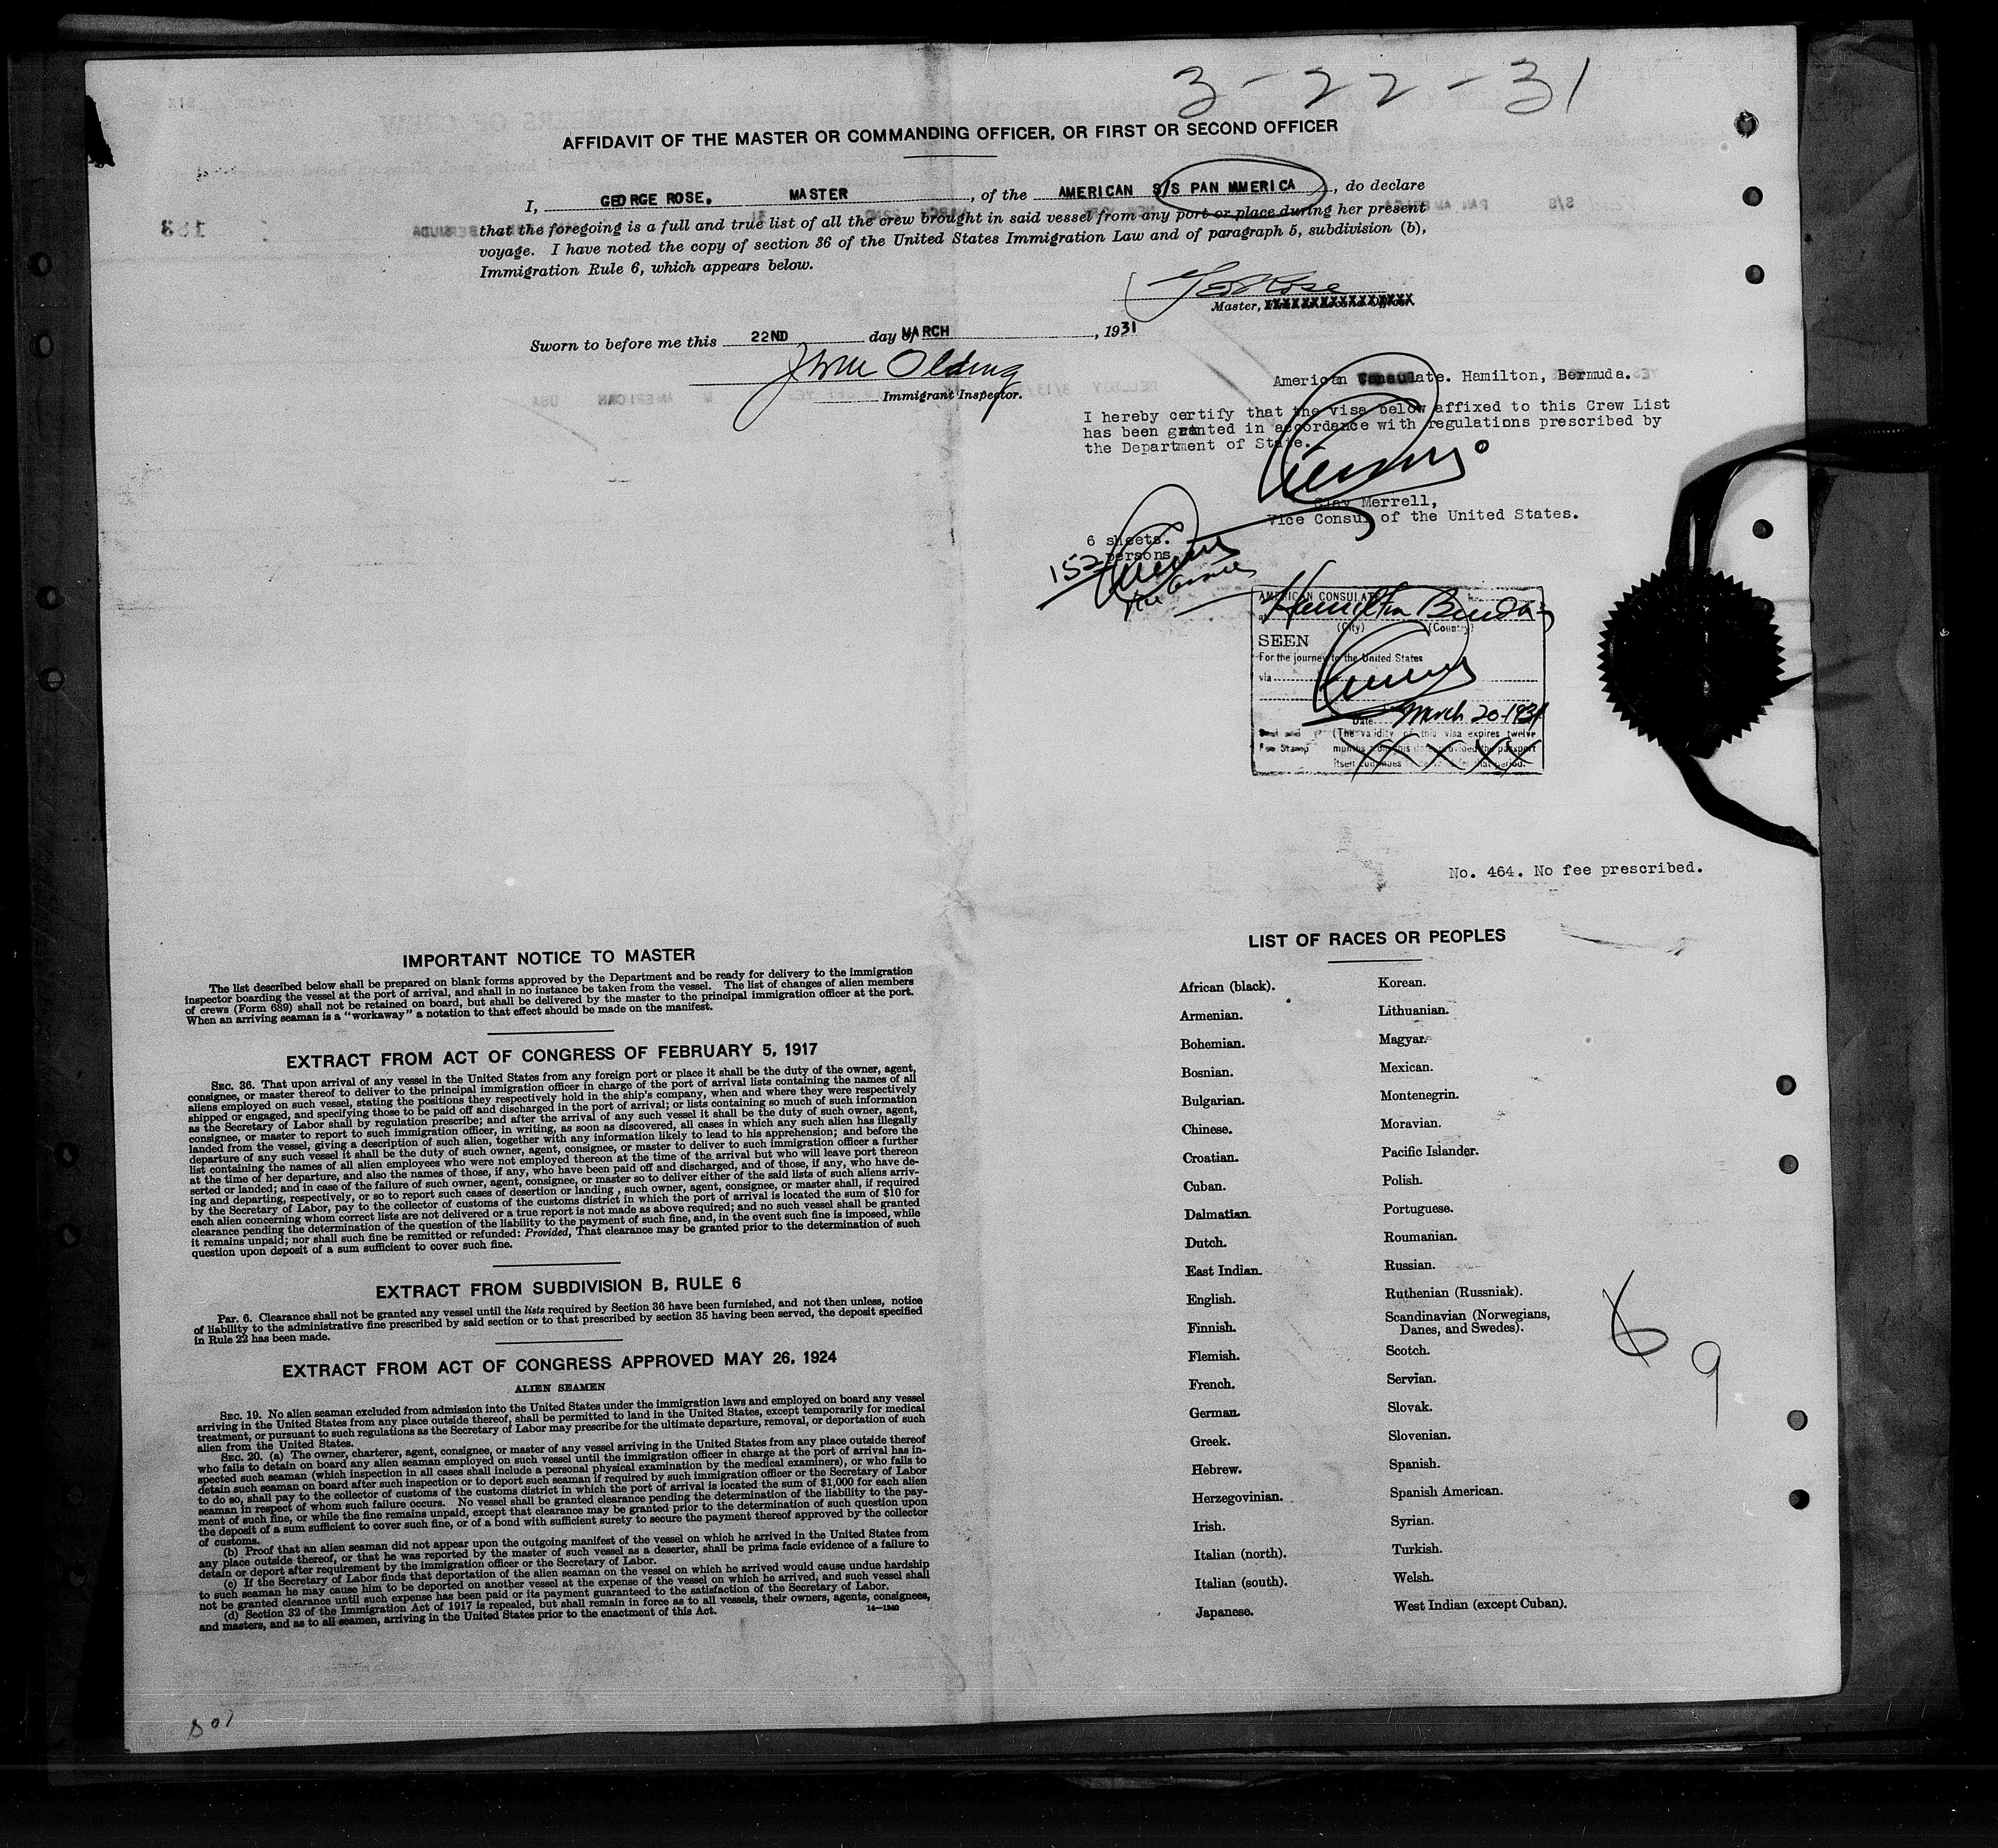 3-22-31
AFFIDAVIT OF THE MASTER OR COMMANDING OFFICER, OR FIRST OR SECOND OFFICER
I, GEORGE ROSE, MASTER, of the AMERICAN S/S PAN AMERICA, do declare
that the foregoing is a full and true list of all the crew brought in said vessel from any port or place during her present
voyage. I have noted the copy of section 36 of the United States Immigration Law and of paragraph 5, subdivision (b),
Immigration Rule 6, which appears below.
Geo Rose
Master,
Sworn to before me this 22ND day of MARCH, 1931
Olding
Immigrant Inspector.
American Consulate. Hamilton, Bermuda.
I hereby certify that the visa below affixed to this Crew List
has been granted in accordance with regulations prescribed by
the Department of State.
Clay Merrell,
Vice Consul of the United States.
6 sheets.
152 persons
AMERICAN CONSULATE
at Hamilton Bermuda
(City) (Country)
SEEN
For the journey to the United States
via
Date March 20-1931
(The validity of this visa expires twelve
months from this date provided the passport
itself continues to be valid for that period.
No. 464. No fee prescribed.
IMPORTANT NOTICE TO MASTER
The list described below shall be prepared on blank forms approved by the Department and be ready for delivery to the immigration
inspector boarding the vessel at the port of arrival, and shall in no instance be taken from the vessel. The list of changes of alien members
of crews (Form 689) shall not be retained on board, but shall be delivered by the master to the principal immigration officer at the port.
When an arriving seaman is a "workaway" a notation to that effect should be made on the manifest.
EXTRACT FROM ACT OF CONGRESS OF FEBRUARY 5, 1917
SEC. 36. That upon arrival of any vessel in the United States from any foreign port or place it shall be the duty of the owner, agent,
consignee, or master thereof to deliver to the principal immigration officer in charge of the port of arrival lists containing the names of all
aliens employed on such vessel, stating the positions they respectively hold in the ship's company, when and where they were respectively
shipped or engaged, and specifying those to be paid off and discharged in the port of arrival; or lists containing so much of such information
as the Secretary of Labor shall by regulation prescribe; and after the arrival of any such vessel it shall be the duty of such owner, agent,
consignee, or master to report to such immigration officer, in writing, as soon as discovered, all cases in which any such alien has illegally
landed from the vessel, giving a description of such alien, together with any information likely to lead to his apprehension; and before the
departure of any such vessel it shall be the duty of such owner, agent, consignee, or master to deliver to such immigration officer a further
list containing the names of all alien employees who were not employed thereon at the time of the arrival but who will leave port thereon
at the time of her departure, and also the names of those, if any, who have been paid off and discharged, and of those, if any, who have de-
serted or landed; and in case of the failure of such owner, agent, consignee, or master so to deliver either of the said lists of such aliens arriv-
ing and departing, respectively, or so to report such cases of desertion or landing, such owner, agent, consignee, or master shall, if required
by the Secretary of Labor, pay to the collector of customs of the customs district in which the port of arrival is located the sum of $10 for
each alien concerning whom correct lists are not delivered or a true report is not made as above required; and no such vessel shall be granted
clearance pending the determination of the question of the liability to the payment of such fine, and, in the event such fine is imposed, while
it remains unpaid; nor shall such fine be remitted or refunded: Provided, That clearance may be granted prior to the determination of such
question upon deposit of a sum sufficient to cover such fine.
EXTRACT FROM SUBDIVISION B, RULE 6
PAR. 6. Clearance shall not be granted any vessel until the lists required by Section 36 have been furnished, and not then unless, notice
of liability to the administrative fine prescribed by said section or to that prescribed by section 35 having been served, the deposit specified
in Rule 22 has been made.
EXTRACT FROM ACT OF CONGRESS APPROVED MAY 26, 1924
ALIEN SEAMEN
SEC. 19. No alien seaman excluded from admission into the United States under the immigration laws and employed on board any vessel
arriving in the United States from any place outside thereof, shall be permitted to land in the United States, except temporarily for medical
treatment, or pursuant to such regulations as the Secretary of Labor may prescribe for the ultimate departure, removal, or deportation of such
alien from the United States.
SEC. 20. (a) The owner, charterer, agent, consignee, or master of any vessel arriving in the United States from any place outside thereof
who fails to detain on board any alien seaman employed on such vessel until the immigration officer in charge at the port of arrival has in-
spected such seaman (which inspection in all cases shall include a personal physical examination by the medical examiners), or who fails to
detain such seaman on board after such inspection or to deport such seaman if required by such immigration officer or the Secretary of Labor
to do so, shall pay to the collector of customs of the customs district in which the port of arrival is located the sum of $1,000 for each alien
seaman in respect of whom such failure occurs. No vessel shall be granted clearance pending the determination of the liability to the pay-
ment of such fine, or while the fine remains unpaid, except that clearance may be granted prior to the determination of such question upon
the deposit of a sum sufficient to cover such fine, or of a bond with sufficient surety to secure the payment thereof approved by the collector
of customs.
(b) Proof that an alien seaman did not appear upon the outgoing manifest of the vessel on which he arrived in the United States from
any place outside thereof, or that he was reported by the master of such vessel as a deserter, shall be prima facie evidence of a failure to
detain or deport after requirement by the immigration officer or the Secretary of Labor.
(c) If the Secretary of Labor finds that deportation of the alien seaman on the vessel on which he arrived would cause undue hardship
to such seaman he may cause him to be deported on another vessel at the expense of the vessel on which he arrived, and such vessel shall
not be granted clearance until such expense has been paid or its payment guaranteed to the satisfaction of the Secretary of Labor.
(d) Section 32 of the Immigration Act of 1917 is repealed, but shall remain in force as to all vessels, their owners, agents, consignees,
and masters, and as to all seamen, arriving in the United States prior to the enactment of this Act.
14—1240
LIST OF RACES OR PEOPLES
African (black).
Armenian.
Bohemian.
Bosnian.
Bulgarian.
Chinese.
Croatian.
Cuban.
Dalmatian.
Dutch.
East Indian.
English.
Finnish.
Flemish.
French.
German.
Greek.
Hebrew.
Herzegovinian.
Irish.
Italian (north).
Italian (south).
Japanese.
Korean.
Lithuanian.
Magyar.
Mexican.
Montenegrin.
Moravian.
Pacific Islander.
Polish.
Portuguese.
Roumanian.
Russian.
Ruthenian (Russniak).
Scandinavian (Norwegians,
Danes, and Swedes).
Scotch.
Servian.
Slovak.
Slovenian.
Spanish.
Spanish American.
Syrian.
Turkish.
Welsh.
West Indian (except Cuban).
6
9
801